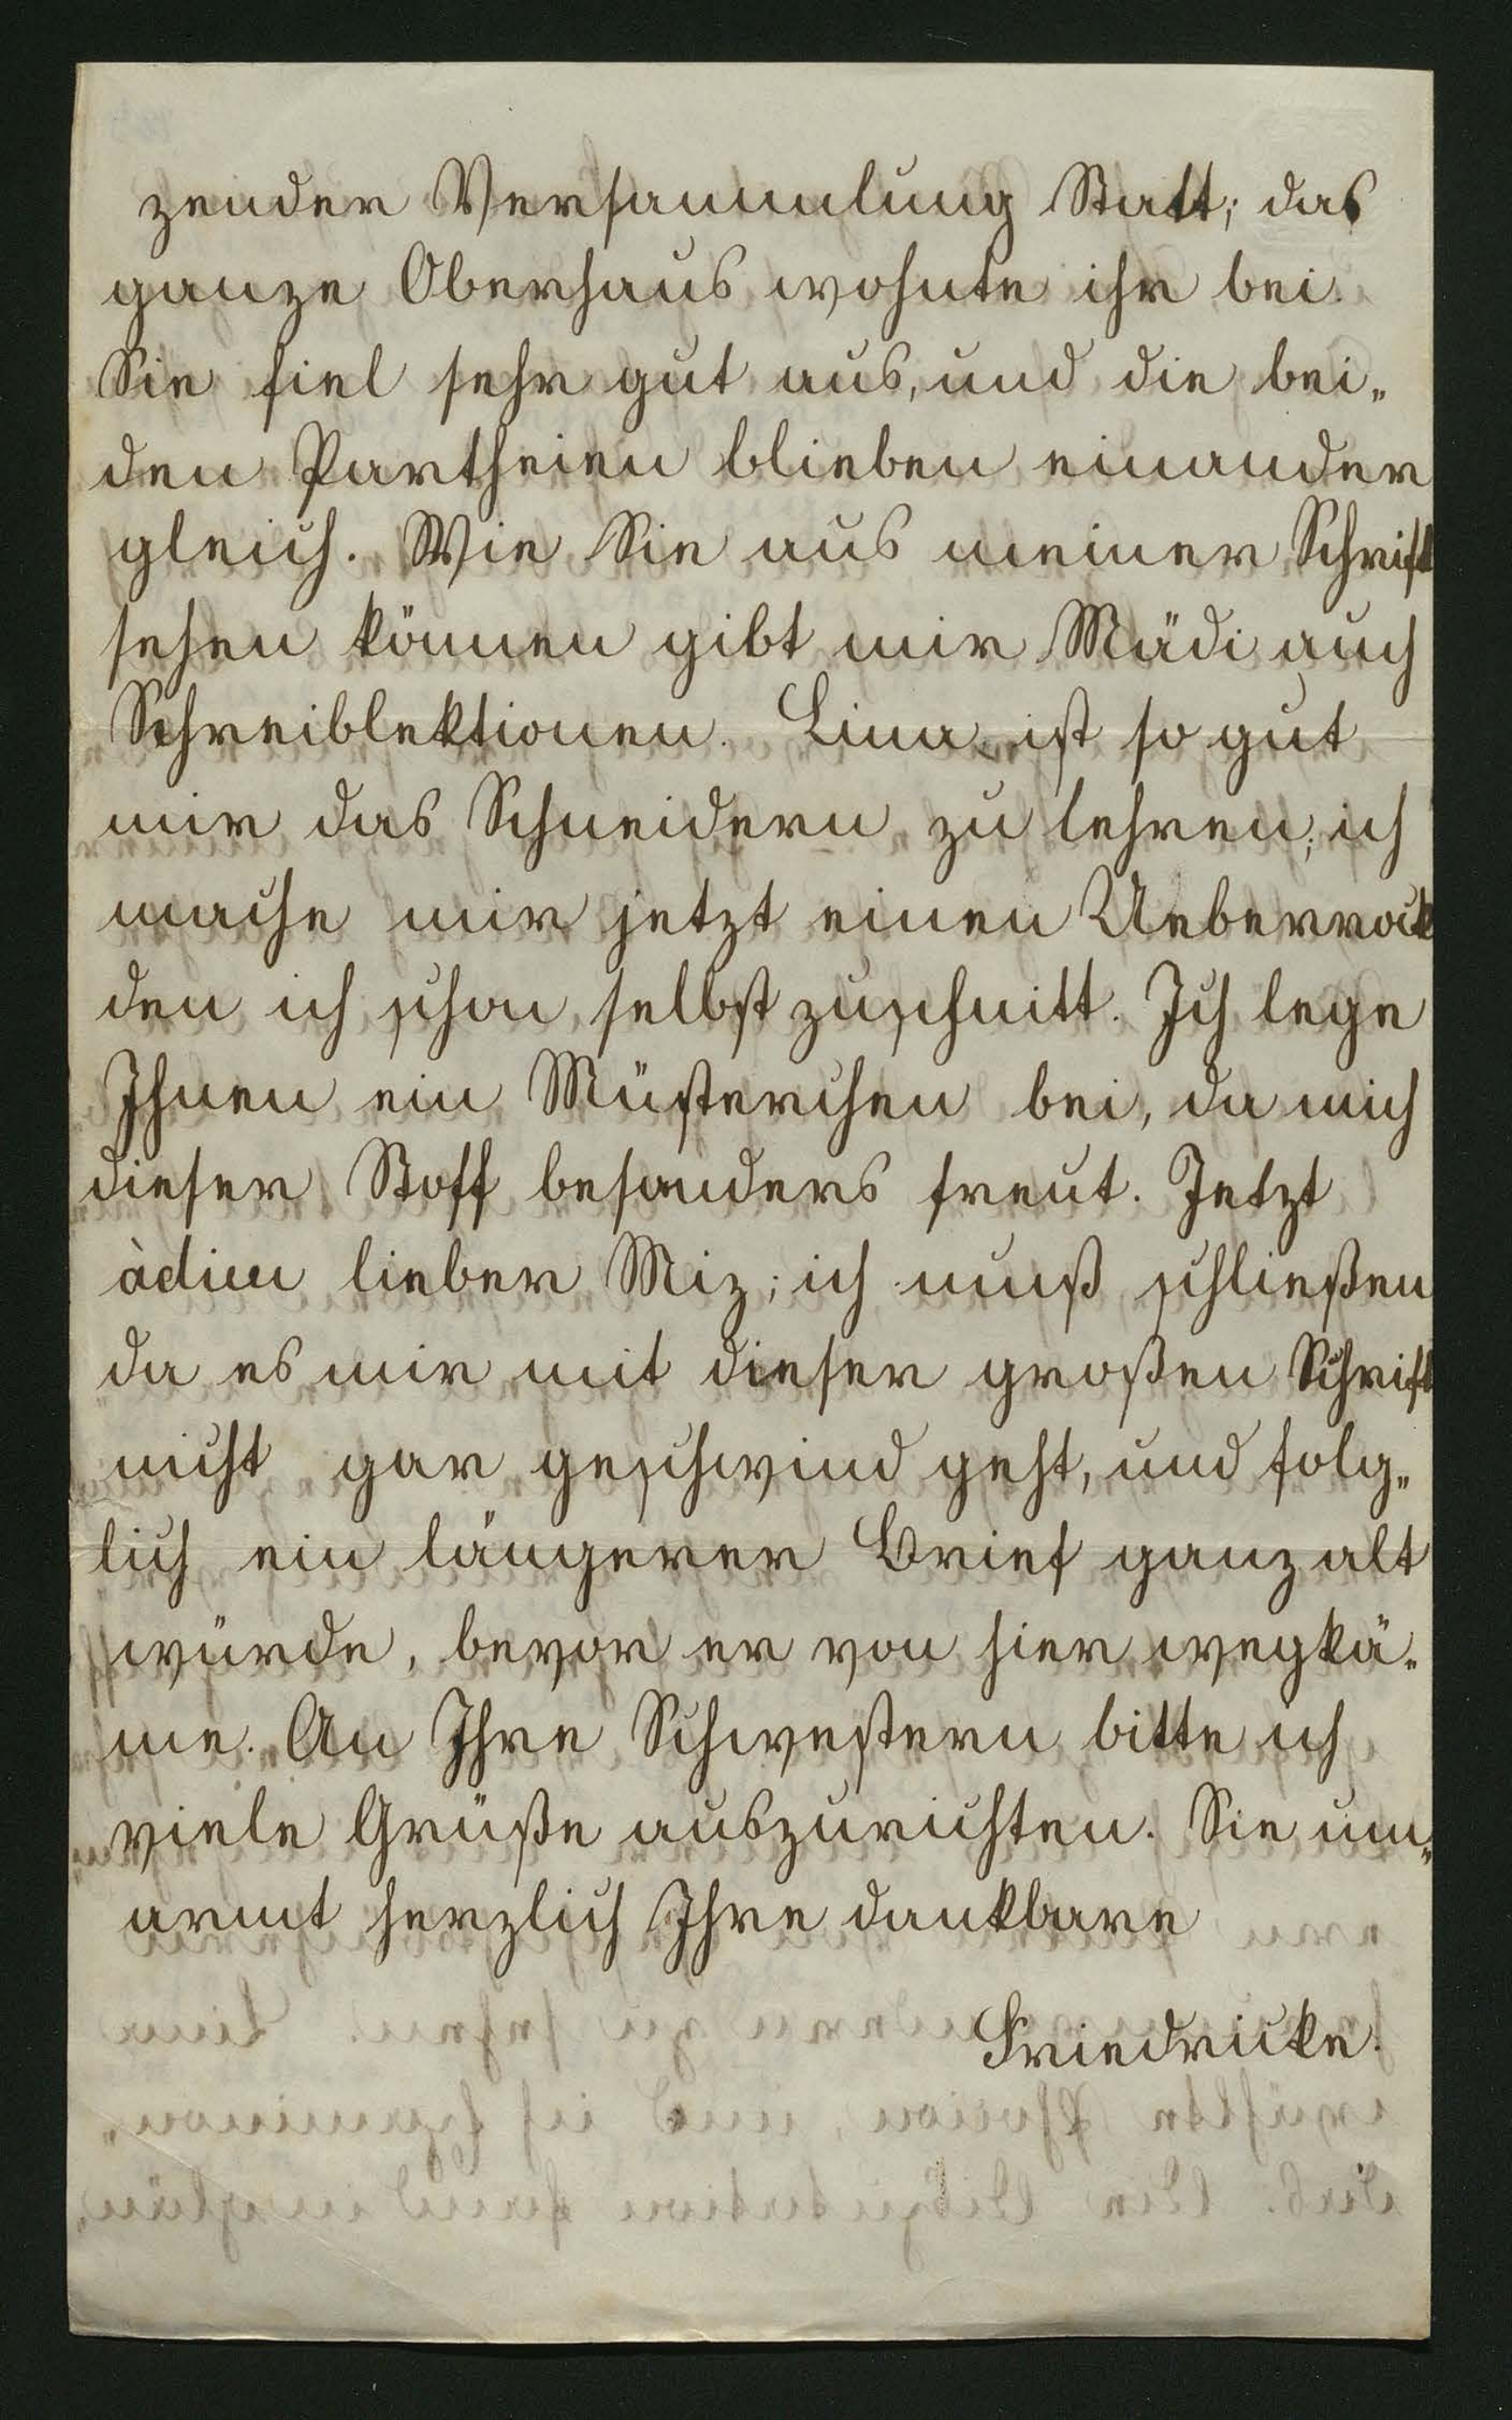 zender Versammlung Statt; das
ganze Oberhaus wohnte ihr bei.
Sie fiel sehr gut aus, und die bei„
den Partheien blieben einander
gleich. Wie Sie aus meiner Schrift
sehen können gibt mir Mädi auch
Schreiblektionen. Lina ist so gut
mir das Schneidern zu lehren; ich
mache mir jetzt einen Ueberrock
den ich schon selbst zuschnitt. Ich lege
Ihnen ein Müsterchen bei, da mich
dieser Stoff besonders freut. Jetzt
àdieu lieber Miz; ich muß schließen
da es mir mit dieser großen Schrift
nicht gar geschwind geht, und folg„
lich ein längerer Brief ganz alt
würde, bevor er von hier wegkä„
me. An Ihre Schwestern bitte ich
viele Grüße auszurichten. Sie um„
armt herzlich Ihre dankbare
Friedricke.